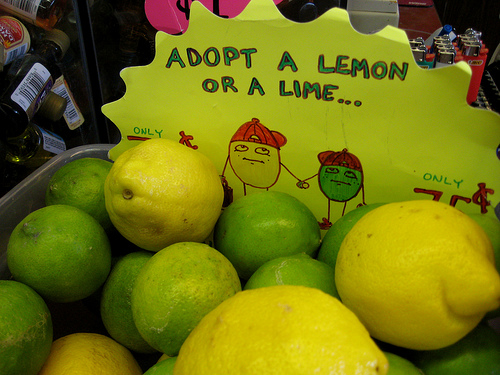 ADOPT A LEMON
OR A LIME...
ONLY
ONLY